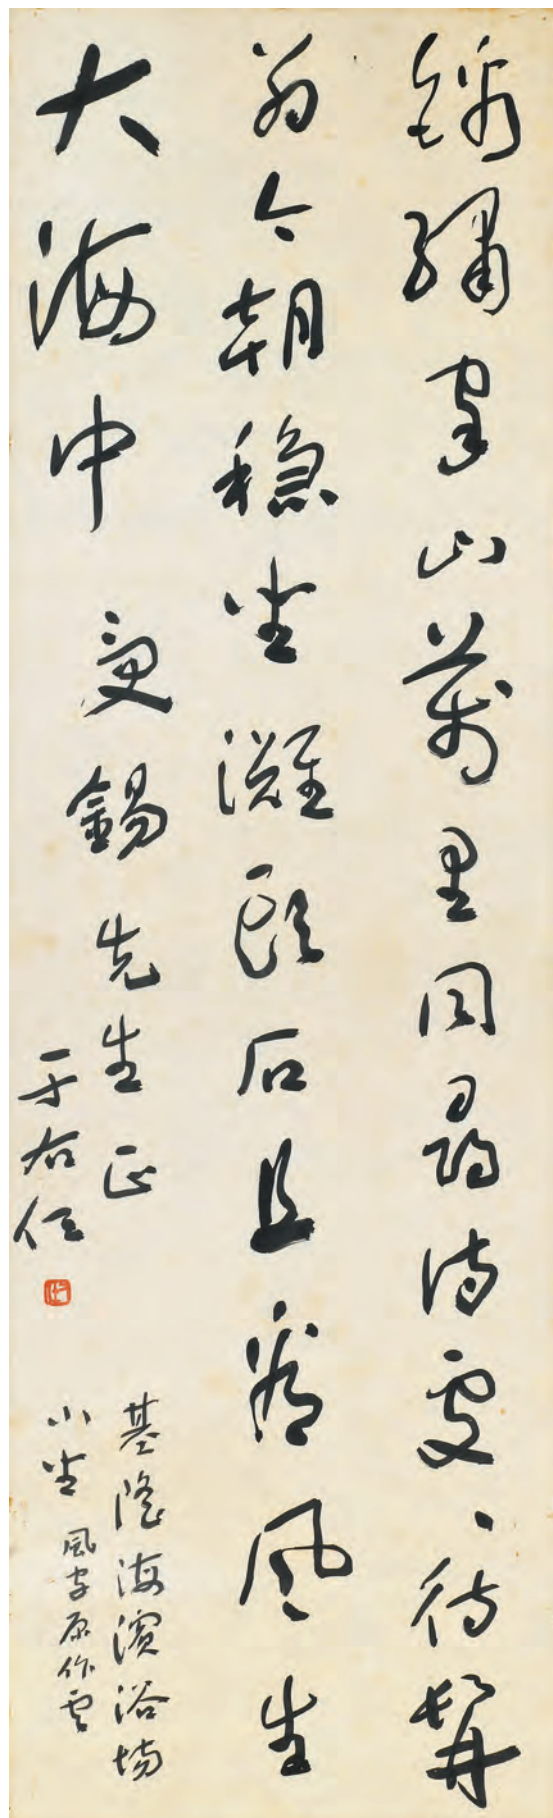 錦繡家山萬里同尋詩處、待髯
翁今朝穩坐灘頭石且看風生
大海中
受錫先生正
于右任
基隆海濱浴場
小坐 風字原作雲